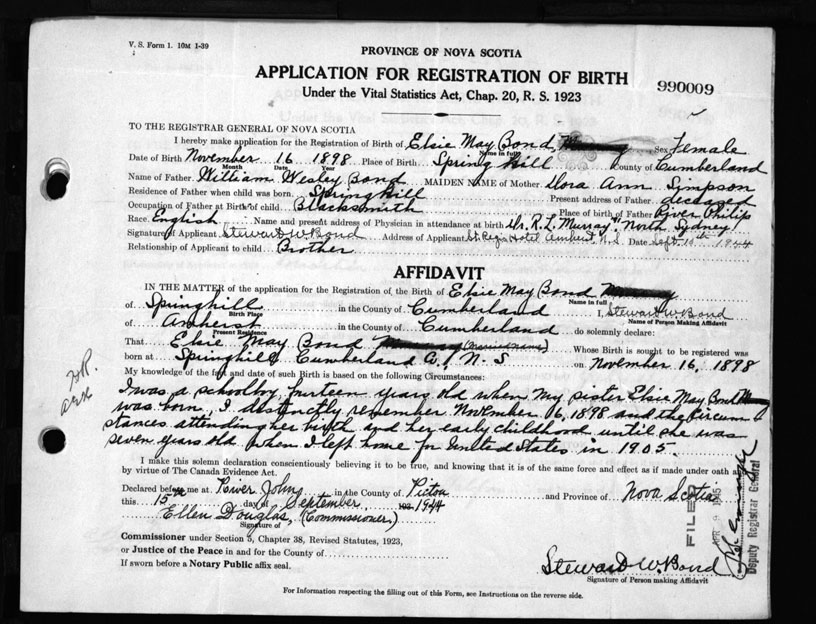 V. S. Form 1. 10M 1-39
PROVINCE OF NOVA SCOTIA
APPLICATION FOR REGISTRATION OF BIRTH
990009
Under the Vital Statistics Act, Chap. 20, R. S. 1923
TO THE REGISTRAR GENERAL OF NOVA SCOTIA
I hereby make application for the Registration of Birth of Elsie May Bond, Sex Female
Name in full
Date of Birth November 16 1898 Place of Birth Spring Hill County of Cumberland
Month Date Year
Name of Father William Wesley Bond MAIDEN NAME of Mother Dora Ann Simpson
Residence of Father when child was born Springhill Present address of Father deceased
Occupation of Father at Birth of child Blacksmith Place of birth of Father River Philip
Race English Name and present address of Physician in attendance at birth Dr. R. L. Murray, North Sydney
Signature of Applicant Steward W. Bond Address of Applicant St. Regis Hotel Amherst, N.S. Date Sept. 1944
Relationship of Applicant to child Brother
AFFIDAVIT
IN THE MATTER of the application for the Registration, of the Birth of Elsie May Bond
Name in full
of Springhill in the County of Cumberland I, Steward W. Bond
Birth Place Name of Person Making Affidavit
of Amherst in the County of Cumberland do solemnly declare:
Present Residence
That Elsie May Bond (married name) Whose Birth is sought to be registered was
born at Springhill Cumberland Co., N. S on November 16, 1898
My knowledge of the fact and date of such Birth is based on the following Circumstances:
I was a schoolboy, fourteen years old when my sister Elsie May Bond
was born, I distinctly remember November 16, 1898 and the circum
stances attending her birth and her early childhood until she was
seven years old. When I left home for United States in 1905.
I make this solemn declaration conscientiously believing it to be true, and knowing that it is of the same force and effect as if made under oath and
by virtue of The Canada Evidence Act.
Declared before me at River John in the County of Pictou and Province of Nova Scotia
this 15th day of September 1944
Ellen Douglas, (Commissioner)
Signature of
Commissioner under Section 5, Chapter 38, Revised Statutes, 1923,
or Justice of the Peace in and for the County of
If sworn before a Notary Public affix seal.
Steward W. Bond
Signature of Person making Affidavit
FILED
Deputy Registrar General
For Information respecting the filling out of this Form, see Instructions on the reverse side.